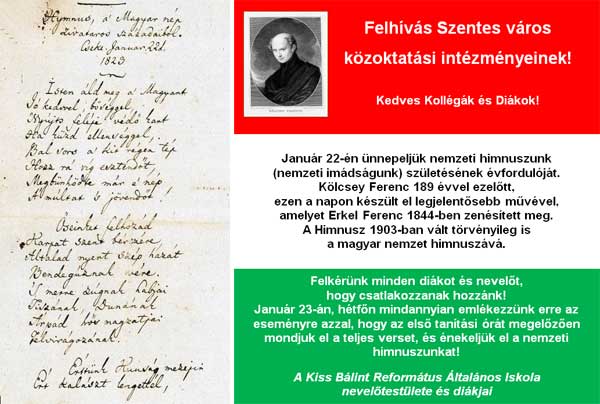 Hymnus, a' Magyar nép
zivataros századaiból.
Cseke. Január. 22d.
1823.
Isten áld meg a' Magyart
Jó kedvvel, bőséggel,
Nyújts feléje védő kart
Ha küzd ellenséggel;
Bal sors a' kit régen tép
Hozz rá víg esztendőt,
Megbűnhődte már e' nép
A' multat 's jövendőt!
Őseinket felhozád
Kárpát szent bérczére,
Általad nyert szép hazát
Bendegúznak vére.
'S merre zúgnak habjai
Tiszának, Dunának
Árpád hős magzatjai
Felvirágozának.
Értünk Kunság mezején
Ért kalászt lengettél,
Felhívás Szentes város
közoktatási intézményeinek!
Kedves Kollégák és Diákok!
Január 22-én ünnepeljük nemzeti himnuszunk
(nemzeti imádságunk) születésének évfordulóját.
Kölcsey Ferenc 189 évvel ezelőtt,
ezen a napon készült el legjelentősebb művével,
amelyet Erkel Ferenc 1844-ben zenésített meg.
A Himnusz 1903-ban vált törvényileg is
a magyar nemzet himnuszává.
Felkérünk minden diákot és nevelőt,
hogy csatlakozzanak hozzánk!
Január 23-án, hétfőn mindannyian emlékezzünk erre az
eseményre azzal, hogy az első tanítási órát megelőzően
mondjuk el a teljes verset, és énekeljük el a nemzeti
himnuszunkat!
A Kiss Bálint Református Általános Iskola
nevelőtestülete és diákjai